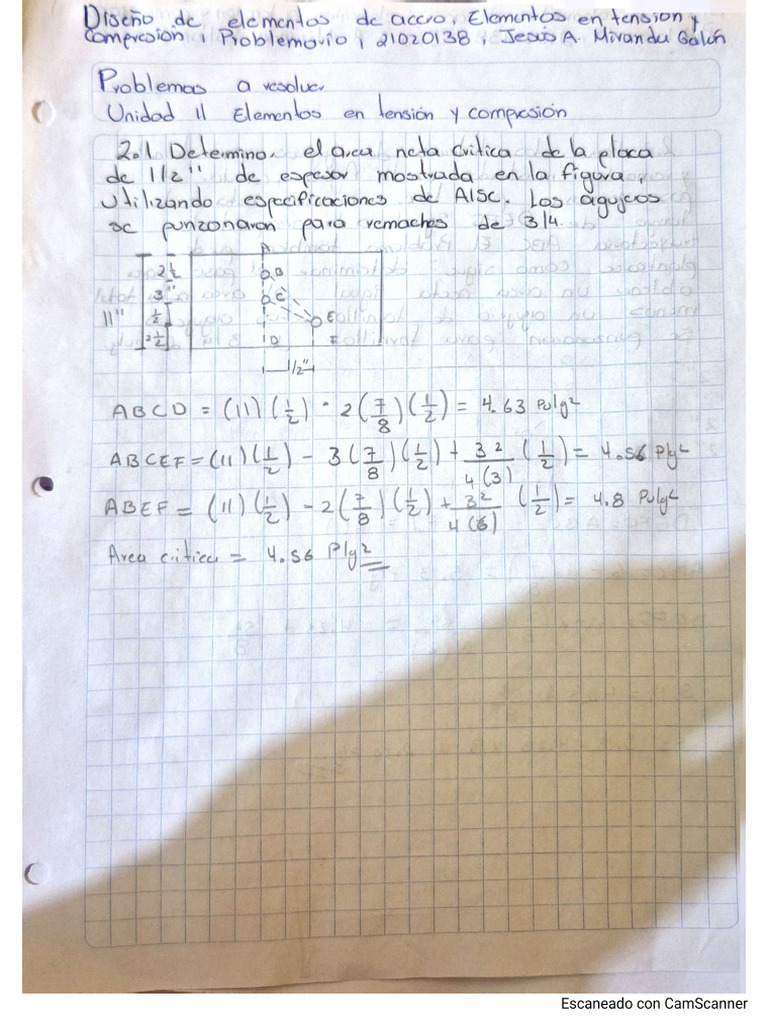 Diseño de elementos de acero, Elementos en tension y
Compresion, Problemario, 21020138, Jesús A. Miranda Galán
Problemas a resolver
Unidad II Elementos en tensión y compresión
2.1 Determina, el area neta critica de la placa
de 1/2" de espesor mostrada en la figura,
utilizando especificaciones de AISC. Los agujeos
se punzonaron para remaches de 3/4.
A
2 1/2
B
3"
C
11"
1/2
E
2 1/2
D
F
1/2"
ABCD = (11)(1/2) - 2(7/8)(1/2) = 4.63 Pulg²
ABCEF = (11)(1/2) - 3(7/8)(1/2) + 3²/4(3) (1/2) = 4.56 Plg²
ABEF = (11)(1/2) - 2(7/8)(1/2) + 3²/4(6) (1/2) = 4.8 Pulg²
Area critica = 4.56 Plg²
Escaneado con CamScanner